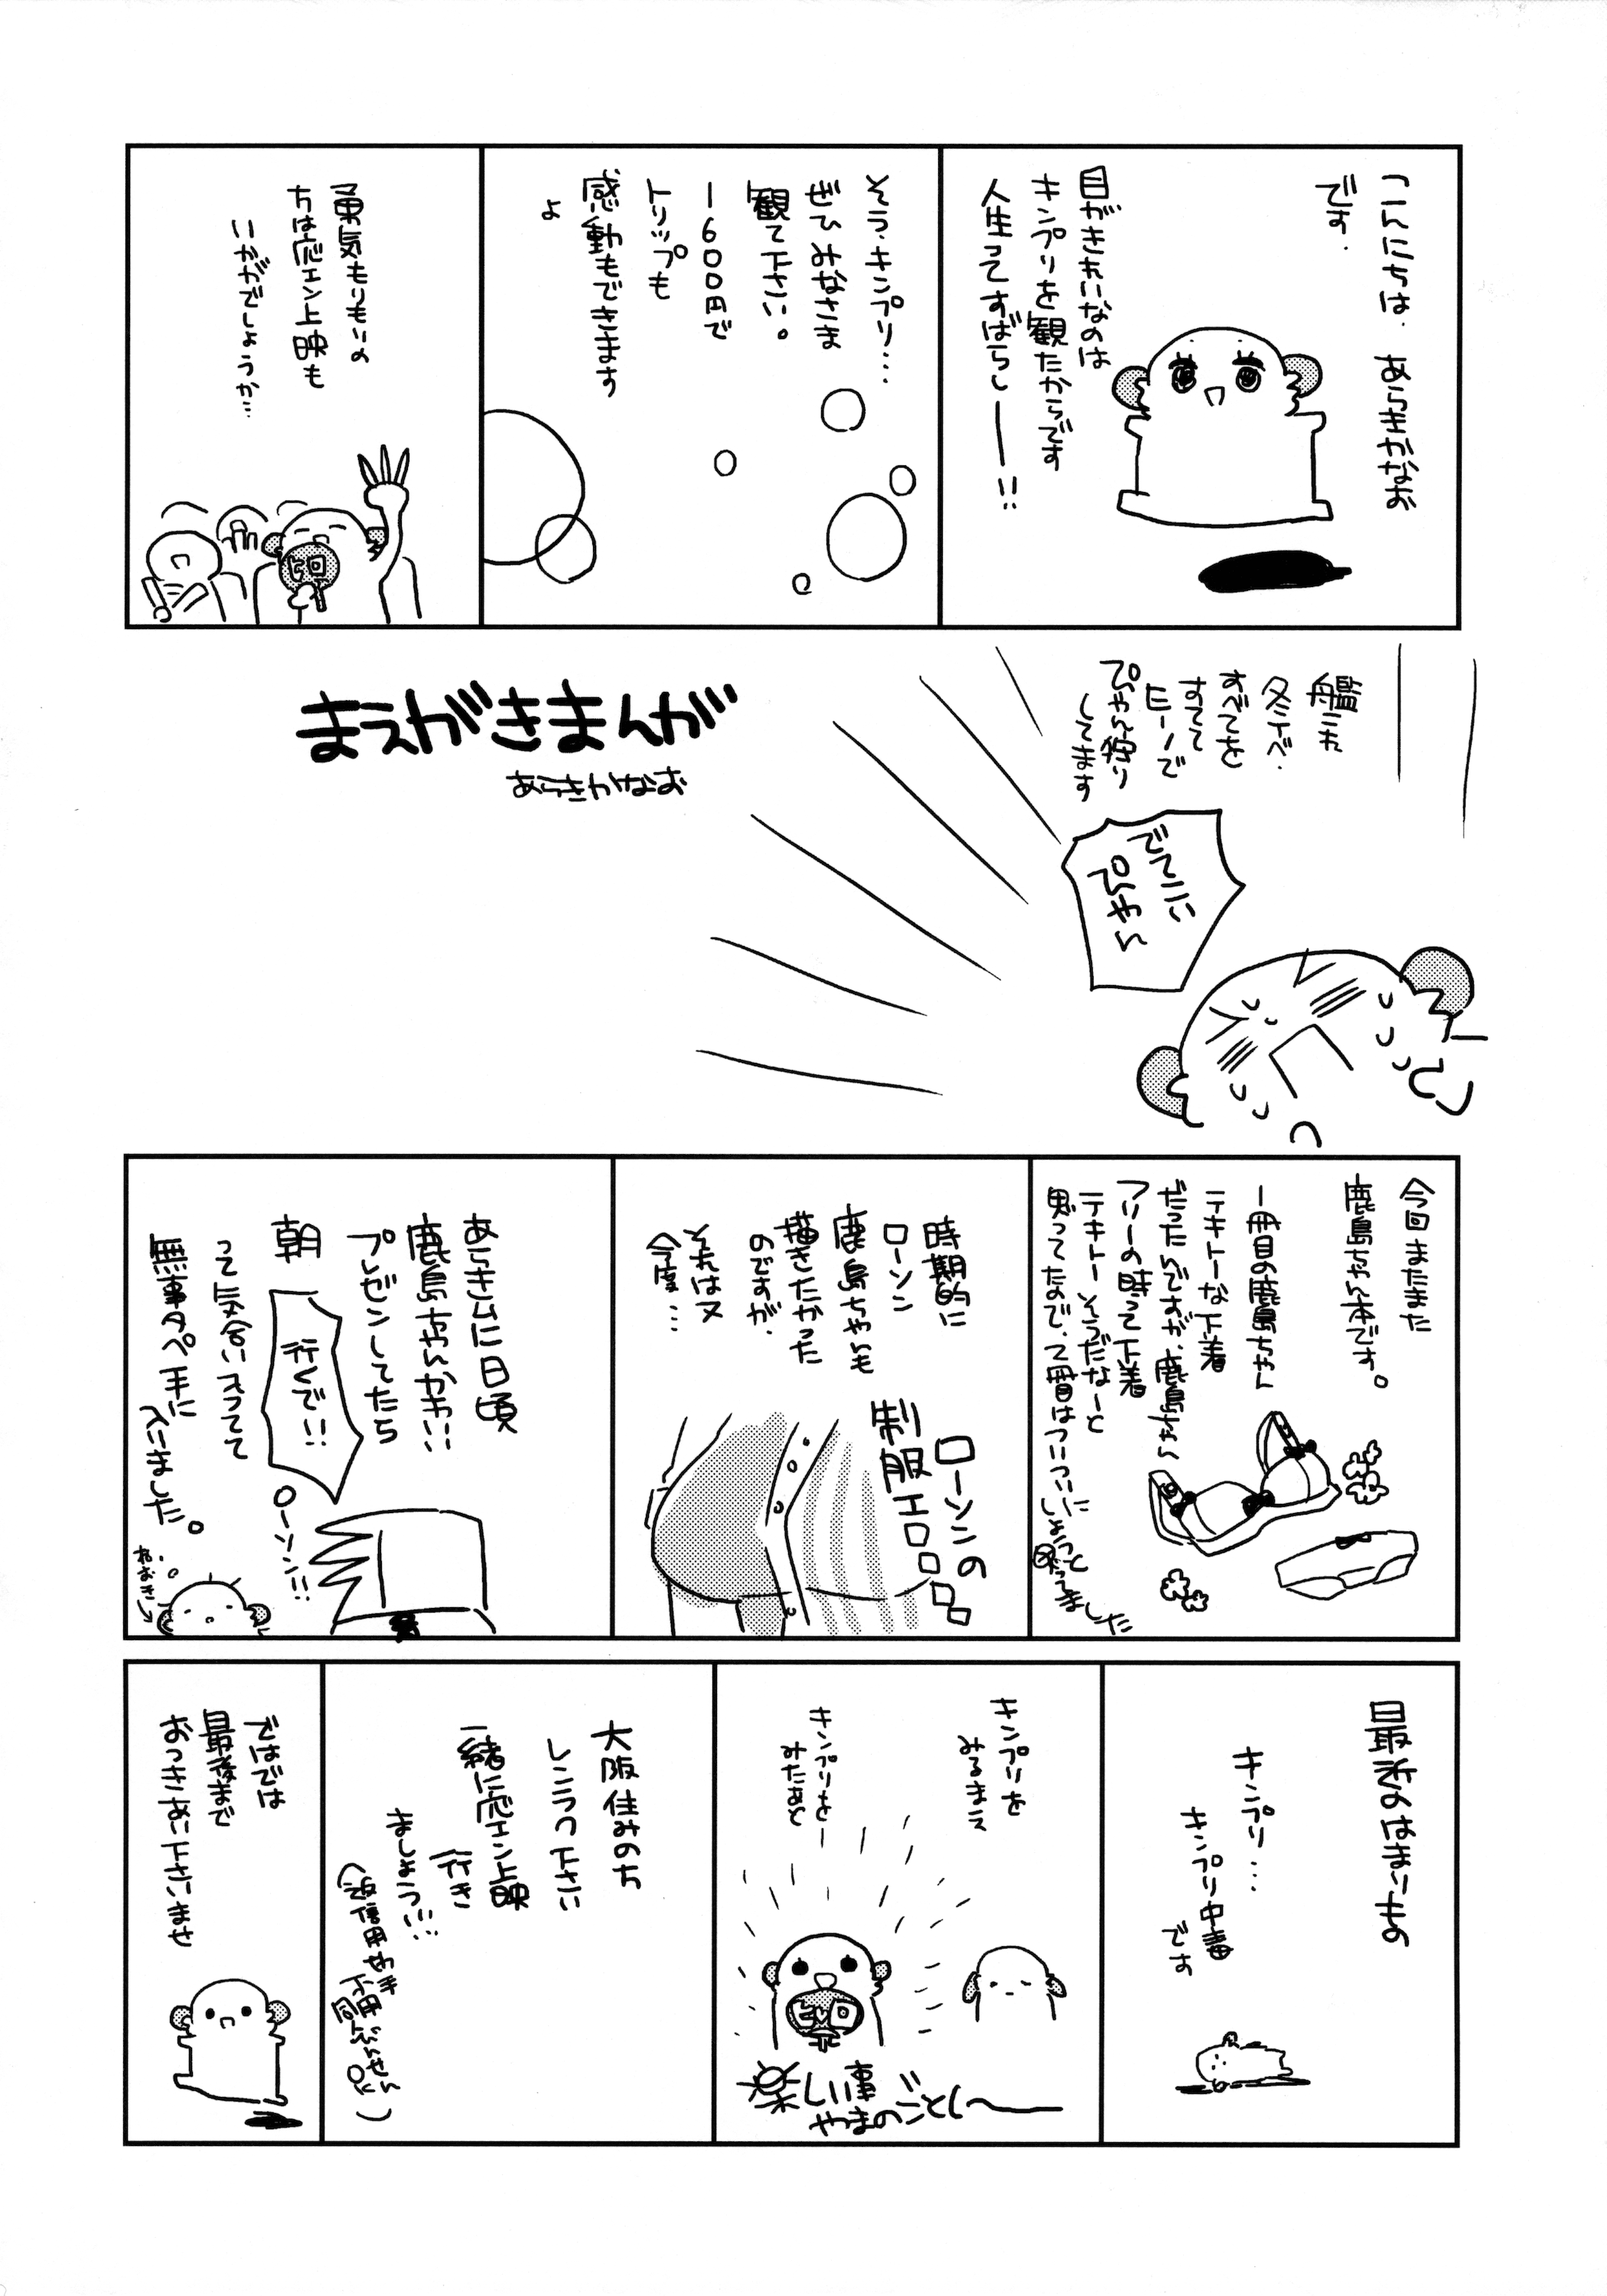 こんにちは、あらきかなお
です。
目がきれいなのは
キンプリを観たからです
人生ってすばらしーー!!
そう、キンプリ…
ぜひみなさま
観て下さい。
1600円で
トリップも
感動もできます
よ
勇気もりもりの
方は応エン上映も
いかがでしょうか…
艦これ
冬イベ、
すべてを
すてて
ヒーノで
ぴゃん狩り
してます
でてこい
ぴゃん
まえがきまんが
あらきかなお
今回またまた
鹿島ちゃん本です。
一冊目の鹿島ちゃん
テキトーな下着
だったんですが、鹿島ちゃん
フリーの時って下着
テキトーそうだなーと
思ってたなので、2冊目はついついに
しようと
思ってました
時期的に
ローソン
鹿島ちゃんも
描きたかった
のですが、
それは又
今度…
ローソンの
制服エロロロロ
あらきムに日頃
鹿島ちゃんかわいい
プレゼンしてたら
朝
行くで!!
ローソン!!
って気合い入ってて
無事タペ手に
入りました。
ねおき
最近のはまりもの
キンプリ…
キンプリ中毒
です
キンプリを
みるまえ
キンプリをー
みたあと
ヒロ
楽しい事
やまのごとし〜
大阪住みの方
レンラク下さい
一緒に応エン上映
行き
ましょう!!…
(返信用切手
不用
同人さん
OK)
ではでは
最後まで
おつきあい下さいませ